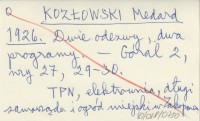 KOZŁOWSKI Medard
1926. Dwie odezwy, dwa
programy. — Góral 2,
nry 27, 29-30.
TPN, elektrownia, długi
samorządu i ogród miejski w Zakopanem